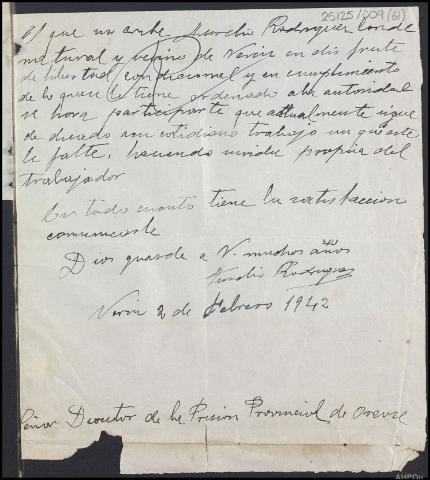 25125/009(61)
El que suscribe Aurelio Rodriguez Conde
natural y vecino de Verin en disfrute
de libertad condicional y en cumplimiento
de lo que se le tiene ordenado a la autoridad
se honra participarle que actualmente sigue
dedicado a su cotidiano trabajo sin que este
le falte, haciendo vida propia del
trabajador
Es todo cuanto tiene la satisfaccion
comunicarle
Dios guarde a V. muchos años
Aurelio Rodriguez
Verin 2 de Febrero 1942
Señor Director de la Prision Provincial de Orense
AHPOu